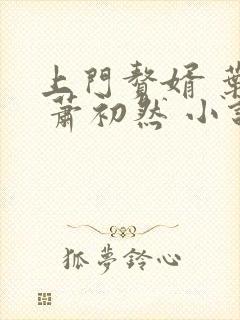 上門贅婿 葉
蕭初然 小
狐夢鈴心